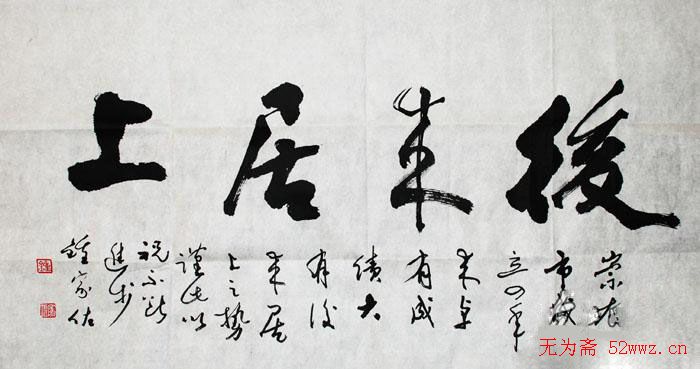 後来居上
崇左
市設
立四年
来卓
有成
績大
有後
来居
上之勢
謹此以
祝不断
進步
鍾家佐
无为斋 52wwz.cn